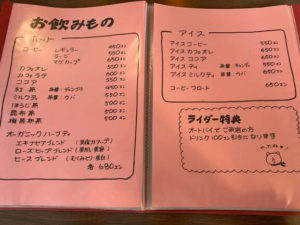 お飲みもの
ホット
コーヒー レギュラー 450エン
ラージ 550エン
マグカップ 650エン
カフェオレ 550エン
カフェラテ 600エン
ココア 550エン
紅茶 茶葉:ディンブラ 450エン
ミルクティ 茶葉:ウバ 500エン
ほうじ茶
昆布茶
梅昆布茶
オーガニックハーブティ
エキナセアブレンド
ローズヒップブレンド (美肌、美容)
ピースブレンド
各 680エン
アイス
アイスコーヒー 550エン
アイスカフェオレ 650エン
アイスココア 650エン
アイスティ 茶葉:ディンブラ 550エン
アイスミルクティ 茶葉:ウバ 600エン
コーヒーフロート 650エン
ライダー特典
オートバイでご来店の方
ドリンク100エン引きになります